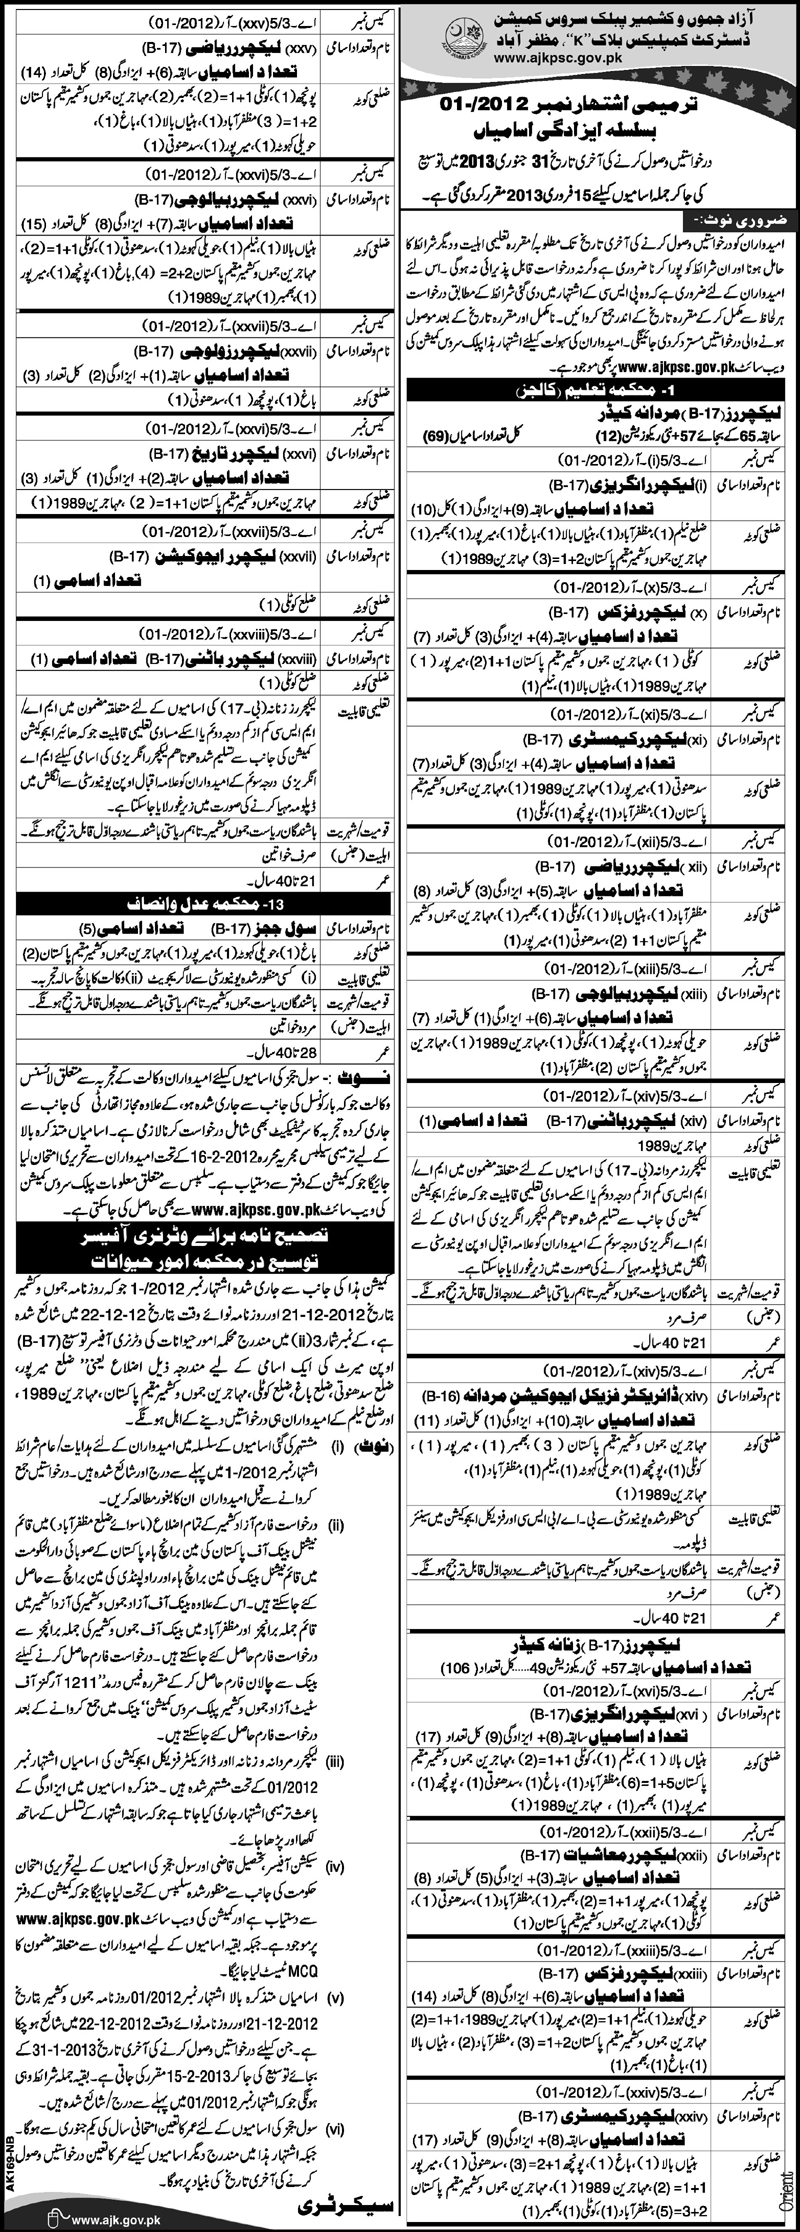 آزاد جموں و کشمیر پبلک سروس کمیشن
ڈسٹرکٹ کمپلیکس بلاک "K"، مظفر آباد
www.ajkpsc.gov.pk
ترمیمی اشتہار نمبر 2012/-01
بسلسلہ ایزادگی اسامیاں
درخواستیں وصول کرنے کی آخری تاریخ 31 جنوری 2013 میں توسیع
کی جا کر جملہ اسامیوں کیلئے 15 فروری 2013 مقرر کر دی گئی ہے۔
ضروری نوٹ:-
امیدواران کو درخواستیں وصول کرنے کی آخری تاریخ تک مطلوبہ/مقررہ تعلیمی اہلیت و دیگر شرائط کا
حامل ہونا اور ان شرائط کو پورا کرنا ضروری ہے وگرنہ درخواست قابل پذیرائی نہ ہوگی۔ اس لئے
امیدواران کے لئے ضروری ہے کہ وہ پی ایس سی کے اشتہار میں دی گئی شرائط کے مطابق درخواست
ہر لحاظ سے مکمل کر کے مقررہ تاریخ کے اندر جمع کروائیں۔ نامکمل اور مقررہ تاریخ کے بعد موصول
ہونے والی درخواستیں مسترد کر دی جائینگی۔ امیدواران کی سہولت کیلئے اشتہار ہذا پبلک سروس کمیشن کی
ویب سائٹ www.ajkpsc.gov.pk پر بھی موجود ہے۔
1- محکمہ تعلیم (کالجز)
لیکچررز (B-17) مردانہ کیڈر
سابقہ 65 کے بجائے 57+ نئی ریکوزیشن (12) کل تعداد اسامیاں (69)
کیس نمبر اے۔5/3(i)۔آر(2012/-01)
نام و تعداد اسامی (i) لیکچرر انگریزی (B-17)
تعداد اسامیاں سابقہ (9)+ ایزادگی (1) کل (10)
ضلعی کوٹہ ضلع نیلم (1)، مظفرآباد (1)، ہٹیاں بالا (1)، باغ (1)، میرپور (1)، بھمبر (1)
مہاجرین جموں و کشمیر مقیم پاکستان 2+1=(3) مہاجرین 1989(1)
کیس نمبر اے۔5/3(x)۔آر(2012/-01)
نام و تعداد اسامی (x) لیکچرر فزکس (B-17)
تعداد اسامیاں سابقہ (4)+ ایزادگی (3) کل تعداد (7)
ضلعی کوٹہ کوٹلی (1)، مہاجرین جموں و کشمیر مقیم پاکستان 1+1(2)، میرپور (1)
مہاجرین 1989(1)، ہٹیاں بالا (1)، نیلم (1)
کیس نمبر اے۔5/3(xi)۔آر(2012/-01)
نام و تعداد اسامی (xi) لیکچرر کیمسٹری (B-17)
تعداد اسامیاں سابقہ (4)+ ایزادگی (3) کل تعداد (7)
ضلعی کوٹہ سدھنوتی (1)، میرپور (1)، مہاجرین 1989(1)، مہاجرین جموں و کشمیر مقیم
پاکستان (1)، مظفرآباد (1)، پونچھ (1)، کوٹلی (1)
کیس نمبر اے۔5/3(xii)۔آر(2012/-01)
نام و تعداد اسامی (xii) لیکچرر ریاضی (B-17)
تعداد اسامیاں سابقہ (5)+ ایزادگی (3) کل تعداد (8)
ضلعی کوٹہ مظفرآباد (1)، ہٹیاں بالا (1)، کوٹلی (1)، بھمبر (1)، مہاجرین جموں و کشمیر
مقیم پاکستان 1+1 (2)، سدھنوتی (1)، میرپور (1)
کیس نمبر اے۔5/3(xiii)۔آر(2012/-01)
نام و تعداد اسامی (xiii) لیکچرر بیالوجی (B-17)
تعداد اسامیاں سابقہ (6)+ ایزادگی (1) کل تعداد (7)
ضلعی کوٹہ حویلی کہوٹہ (1)، پونچھ (1)، کوٹلی (1)، مہاجرین 1989(1)، مہاجرین
جموں و کشمیر مقیم پاکستان (2)، مظفرآباد (1)
کیس نمبر اے۔5/3(xiv)۔آر(2012/-01)
نام و تعداد اسامی (xiv) لیکچرر باٹنی (B-17) تعداد اسامی (1)
ضلعی کوٹہ مہاجرین 1989
تعلیمی قابلیت لیکچررز مردانہ (بی۔17) کی اسامیوں کے لئے متعلقہ مضمون میں ایم اے/
ایم ایس سی کم از کم درجہ دوئم یا اسکے مساوی تعلیمی قابلیت جو کہ ہائیر ایجوکیشن
کمیشن کی جانب سے تسلیم شدہ ہو تاہم لیکچرر انگریزی کی اسامی کے لئے
ایم اے انگریزی درجہ سوئم کے امیدواران کو علامہ اقبال اوپن یونیورسٹی سے
انگلش میں ڈپلومہ مہیا کرنے کی صورت میں زیر غور لایا جا سکتا ہے۔
قومیت/شہریت باشندگان ریاست جموں و کشمیر۔ تاہم ریاستی باشندے درجہ اوّل قابل ترجیح ہونگے۔
(جنس) صرف مرد
عمر 21 تا 40 سال۔
کیس نمبر اے۔5/3(xiv)۔آر(2012/-01)
نام و تعداد اسامی (xiv) ڈائریکٹر فزیکل ایجوکیشن مردانہ (B-16)
تعداد اسامیاں سابقہ (10)+ ایزادگی (1) کل تعداد (11)
ضلعی کوٹہ مہاجرین جموں و کشمیر مقیم پاکستان (3) بھمبر (1)، میرپور (1)،
کوٹلی (1)، پونچھ (1)، حویلی کہوٹہ (1)، نیلم (1)، مظفرآباد (1)،
مہاجرین 1989(1)
تعلیمی قابلیت کسی منظور شدہ یونیورسٹی سے بی۔اے/بی ایس سی اور فزیکل ایجوکیشن میں سینئر
ڈپلومہ۔
قومیت/شہریت باشندگان ریاست جموں و کشمیر۔ تاہم ریاستی باشندے درجہ اوّل قابل ترجیح ہونگے۔
(جنس) صرف مرد
عمر 21 تا 40 سال۔
لیکچررز (B-17) زنانہ کیڈر
تعداد اسامیاں سابقہ 57+ نئی ریکوزیشن 49.....کل تعداد (106)
کیس نمبر اے۔5/3(xvi)۔آر(2012/-01)
نام و تعداد اسامی (xvi) لیکچرر انگریزی (B-17)
تعداد اسامیاں سابقہ (8)+ ایزادگی (9) کل تعداد (17)
ضلعی کوٹہ ہٹیاں بالا (1)، نیلم (1)، کوٹلی 1+1=(2) مہاجرین جموں و کشمیر مقیم
پاکستان 5+1=(6)، مظفرآباد (1)، باغ (1)، سدھنوتی (1)، پونچھ (1)،
میرپور (1)، بھمبر (1)، مہاجرین 1989(1)
کیس نمبر اے۔5/3(xxii)۔آر(2012/-01)
نام و تعداد اسامی (xxii) لیکچرر معاشیات (B-17)
تعداد اسامیاں سابقہ (3)+ ایزادگی (5) کل تعداد (8)
ضلعی کوٹہ پونچھ (1)، میرپور 1+1=(2)، بھمبر (1)، مظفرآباد (1)، سدھنوتی (1)،
کوٹلی (1)، مہاجرین جموں و کشمیر مقیم پاکستان (1)
کیس نمبر اے۔5/3(xxiii)۔آر(2012/-01)
نام و تعداد اسامی (xxiii) لیکچرر فزکس (B-17)
تعداد اسامیاں سابقہ (6)+ ایزادگی (8) کل تعداد (14)
ضلعی کوٹہ حویلی کہوٹہ (1)، نیلم 1+1=(2)، میرپور (1)، مہاجرین 1989، 1+1=(2)
مہاجرین جموں و کشمیر مقیم پاکستان 2+1=(3)، مظفرآباد (2)، ہٹیاں بالا
(1)، باغ (1)، بھمبر (1)
کیس نمبر اے۔5/3(xxiv)۔آر(2012/-01)
نام و تعداد اسامی (xxiv) لیکچرر کیمسٹری (B-17)
تعداد اسامیاں سابقہ (8)+ ایزادگی (9) کل تعداد (17)
ضلعی کوٹہ ہٹیاں بالا (1)، باغ (1)، پونچھ 2+1=(3)، سدھنوتی (1)، میرپور
1+1=(2)، مہاجرین 1989(1)، مہاجرین جموں و کشمیر مقیم پاکستان
3+2=(5)، مظفرآباد (1)، کوٹلی (1)، بھمبر (1)
Orient
کیس نمبر اے۔5/3(xxv)۔آر(2012/-01)
نام و تعداد اسامی (xxv) لیکچرر ریاضی (B-17)
تعداد اسامیاں سابقہ (6)+ ایزادگی (8) کل تعداد (14)
ضلعی کوٹہ پونچھ (1)، کوٹلی 1+1=(2)، بھمبر (2)، مہاجرین جموں و کشمیر مقیم پاکستان
2+1=(3) مظفرآباد (1)، ہٹیاں بالا (1)، باغ (1)،
حویلی کہوٹہ (1)، میرپور (1)، سدھنوتی (1)
کیس نمبر اے۔5/3(xxvi)۔آر(2012/-01)
نام و تعداد اسامی (xxvi) لیکچرر بیالوجی (B-17)
تعداد اسامیاں سابقہ (7)+ ایزادگی (8) کل تعداد (15)
ضلعی کوٹہ ہٹیاں بالا (1)، نیلم (1)، حویلی کہوٹہ (1)، سدھنوتی (1)، کوٹلی 1+1=(2)،
مہاجرین جموں و کشمیر مقیم پاکستان 2+2=(4)، باغ (1)، پونچھ (1)، میرپور
(1)، بھمبر (1) مہاجرین 1989(1)
کیس نمبر اے۔5/3(xxvii)۔آر(2012/-01)
نام و تعداد اسامی (xxvii) لیکچرر زولوجی (B-17)
تعداد اسامیاں سابقہ (1)+ ایزادگی (2) کل تعداد (3)
ضلعی کوٹہ باغ (1)، پونچھ (1)، سدھنوتی (1)
کیس نمبر اے۔5/3(xxvi)۔آر(2012/-01)
نام و تعداد اسامی (xxvi) لیکچرر تاریخ (B-17)
تعداد اسامیاں سابقہ (2)+ ایزادگی (1) کل تعداد (3)
ضلعی کوٹہ مہاجرین جموں و کشمیر مقیم پاکستان 1+1=(2)، مہاجرین 1989(1)
کیس نمبر اے۔5/3(xxvii)۔آر(2012/-01)
نام و تعداد اسامی (xxvii) لیکچرر ایجوکیشن (B-17)
تعداد اسامی (1)
ضلعی کوٹہ ضلع کوٹلی (1)
کیس نمبر اے۔5/3(xxviii)۔آر(2012/-01)
نام و تعداد اسامی (xxviii) لیکچرر باٹنی (B-17) تعداد اسامی (1)
ضلعی کوٹہ ضلع کوٹلی (1)
تعلیمی قابلیت لیکچررز زنانہ (بی۔17) کی اسامیوں کے لئے متعلقہ مضمون میں ایم اے/
ایم ایس سی کم از کم درجہ دوئم یا اسکے مساوی تعلیمی قابلیت جو کہ ہائیر ایجوکیشن
کمیشن کی جانب سے تسلیم شدہ ہو تاہم لیکچرر انگریزی کی اسامی کیلئے ایم اے
انگریزی درجہ سوئم کے امیدواران کو علامہ اقبال اوپن یونیورسٹی سے انگلش میں
ڈپلومہ مہیا کرنے کی صورت میں زیر غور لایا جا سکتا ہے۔
قومیت/شہریت باشندگان ریاست جموں و کشمیر۔ تاہم ریاستی باشندے درجہ اوّل قابل ترجیح ہونگے۔
اہلیت (جنس) صرف خواتین
عمر 21 تا 40 سال۔
13- محکمہ عدل و انصاف
نام و تعداد اسامی سول ججز (B-17) تعداد اسامی (5)
ضلعی کوٹہ باغ (1)، حویلی کہوٹہ (1)، میرپور (1)، مہاجرین جموں و کشمیر مقیم پاکستان (2)
تعلیمی قابلیت (i) کسی منظور شدہ یونیورسٹی سے لاگریجویٹ (ii) وکالت کا پانچ سالہ تجربہ۔
قومیت/شہریت باشندگان ریاست جموں و کشمیر۔ تاہم ریاستی باشندے درجہ اوّل قابل ترجیح ہونگے۔
اہلیت (جنس) مرد و خواتین
عمر 28 تا 40 سال۔
نوٹ:- سول ججز کی اسامیوں کیلئے امیدواران وکالت کے تجربہ سے متعلق لائسنس
وکالت جو کہ بار کونسل کی جانب سے جاری شدہ ہو، کے علاوہ مجاز اتھارٹی کی جانب سے
جاری کردہ تجربہ کا سرٹیفکیٹ بھی شامل درخواست کرنا لازمی ہے۔ اسامیاں متذکرہ بالا
کے لیے ترمیمی سلیبس مجریہ محررہ 2012-2-16 کے تحت امیدواران سے تحریری امتحان لیا
جائیگا جو کہ کمیشن کے دفتر سے دستیاب ہے۔ سلیبس سے متعلق معلومات پبلک سروس کمیشن
کی ویب سائٹ www.ajkpsc.gov.pk سے بھی حاصل کی جا سکتی ہے۔
تصحیح نامہ برائے وٹرنری آفیسر
توسیع در محکمہ امور حیوانات
کمیشن ہذا کی جانب سے جاری شدہ اشتہار نمبر 2012/-1 جو کہ روزنامہ جموں و کشمیر
بتاریخ 2012-12-21 اور روزنامہ نوائے وقت بتاریخ 12-12-22 میں شائع شدہ
ہے، کے نمبر شمار 3(ii) میں مندرج محکمہ امور حیوانات کی وٹرنری آفیسر توسیع (B-17)
اوپن میرٹ کی ایک اسامی کے لیے مندرجہ ذیل اضلاع یعنی "ضلع میرپور،
ضلع سدھنوتی، ضلع باغ، ضلع کوٹلی، مہاجرین جموں و کشمیر مقیم پاکستان، مہاجرین 1989،
اور ضلع نیلم کے امیدواران ہی درخواستیں دینے کے اہل ہونگے۔
(نوٹ) (i) مشتہر کی گئی اسامیوں کے سلسلہ میں امیدواران کے لئے ہدایات/عام شرائط
اشتہار نمبر 2012/-1 میں پہلے سے درج اور شائع شدہ ہیں۔ درخواستیں جمع
کروانے سے قبل امیدواران ان کا بغور مطالعہ کریں۔
(ii) درخواست فارم آزاد کشمیر کے تمام اضلاع (ماسوائے ضلع مظفرآباد) میں قائم
نیشنل بینک آف پاکستان کی مین برانچ ہاء پاکستان کے صوبائی دارالحکومت
میں قائم نیشنل بینک کی مین برانچ ہاء اور راولپنڈی کی مین برانچ سے حاصل
کئے جا سکتے ہیں۔ اس کے علاوہ بینک آف آزاد جموں و کشمیر کی آزاد کشمیر میں
قائم جملہ برانچز اور مظفرآباد میں بینک آف جموں و کشمیر کی جملہ برانچز سے
درخواست فارم حاصل کئے جا سکتے ہیں۔ درخواست فارم حاصل کرنے کیلئے
بینک سے چالان فارم حاصل کر کے مقررہ فیس درمد "1211 آرگنز آف
سٹیٹ آزاد جموں و کشمیر پبلک سروس کمیشن" بینک میں جمع کروانے کے بعد
درخواست فارم حاصل کئے جا سکتے ہیں۔
(iii) لیکچرر مردانہ و زنانہ اور ڈائریکٹر فزیکل ایجوکیشن کی اسامیاں اشتہار نمبر
01/2012 کے تحت مشتہر شدہ ہیں۔ متذکرہ اسامیوں میں ایزادگی کے
باعث ترمیمی اشتہار جاری کیا جاتا ہے جو کہ سابقہ اشتہار کے تسلسل کے ساتھ
لکھا اور پڑھا جائے۔
(iv) سیکشن آفیسر، تحصیل قاضی اور سول ججز کی اسامیوں کے لیے تحریری امتحان
حکومت کی جانب سے منظور شدہ سلیبس کے تحت لیا جائیگا جو کہ کمیشن کے دفتر
سے دستیاب ہے اور کمیشن کی ویب سائٹ www.ajkpsc.gov.pk
پر موجود ہے۔ جبکہ بقیہ اسامیوں کے لیے امیدواران سے متعلقہ مضمون کا
MCQ ٹیسٹ لیا جائیگا۔
(v) اسامیاں متذکرہ بالا اشتہار نمبر 01/2012 روزنامہ جموں و کشمیر بتاریخ
21-12-2012 اور روزنامہ نوائے وقت 2012-12-22 میں شائع ہو چکا
ہے۔ جن کیلئے درخواستیں وصول کرنے کی آخری تاریخ 2013-1-31 کے
بجائے توسیع کی جا کر 2013-2-15 مقرر کی جاتی ہے۔ بقیہ جملہ شرائط وہی
ہونگی جو کہ اشتہار نمبر 01/2012 میں پہلے سے درج/شائع شدہ ہیں۔
(vi) سول ججز کی اسامیوں کے لئے عمر کا تعین امتحانی سال کی یکم جنوری سے ہوگا۔
جبکہ اشتہار ہذا میں مندرج دیگر اسامیوں کیلئے عمر کا تعین درخواستیں وصول
کرنے کی آخری تاریخ کی بنیاد پر ہوگا۔
سیکرٹری
www.ajk.gov.pk
AK169-NB